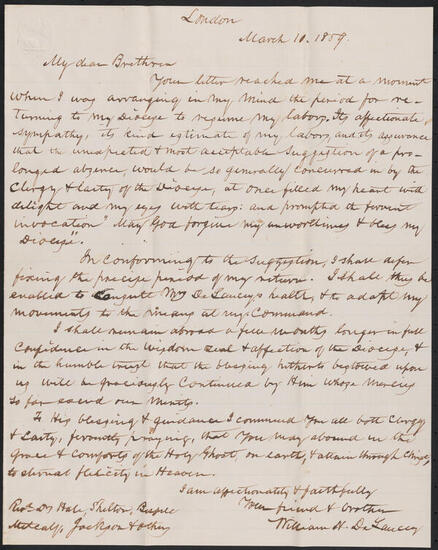 London
March 10. 1859.
My dear Brethren
Your letter reached me at a moment
when I was arranging in my mind the period for re-
turning to my Diocese to resume my labors. Its affectionate
sympathy, its kind estimate of my labors, and its assurance
that the unexpected & most acceptable suggestion of a pro-
longed absence, would be so generally concurred in by the
Clergy & laity of the Diocese, at once filled my heart with
delight and my eyes with tears: and prompted the fervent
invocation "May God forgive my unworthiness & bless my
Diocese".
In conforming to the suggestion, I shall defer
fixing the precise period of my return. I shall thus be
enabled to consult Mrs De Lancey's health, & to adapt my
movements to the means at my command.
I shall remain abroad a few months longer in full
confidence in the wisdom zeal & affection of the Diocese, &
in the humble trust that the blessing hitherto bestowed upon
us will be graciously continued by Him whose mercies
so far exceed our merits.
To His blessing & guidance I commend you all both Clergy
& Laity, fervently praying, that you may abound in the
grace & comforts of the Holy Ghost, on earth, & attain through Christ,
to eternal felicity in Heaven.
I am affectionately & faithfully
Your friend & brother
William H. De Lancey
Revd Drs Hale, Shelton,
Metcalf, Jackson & others